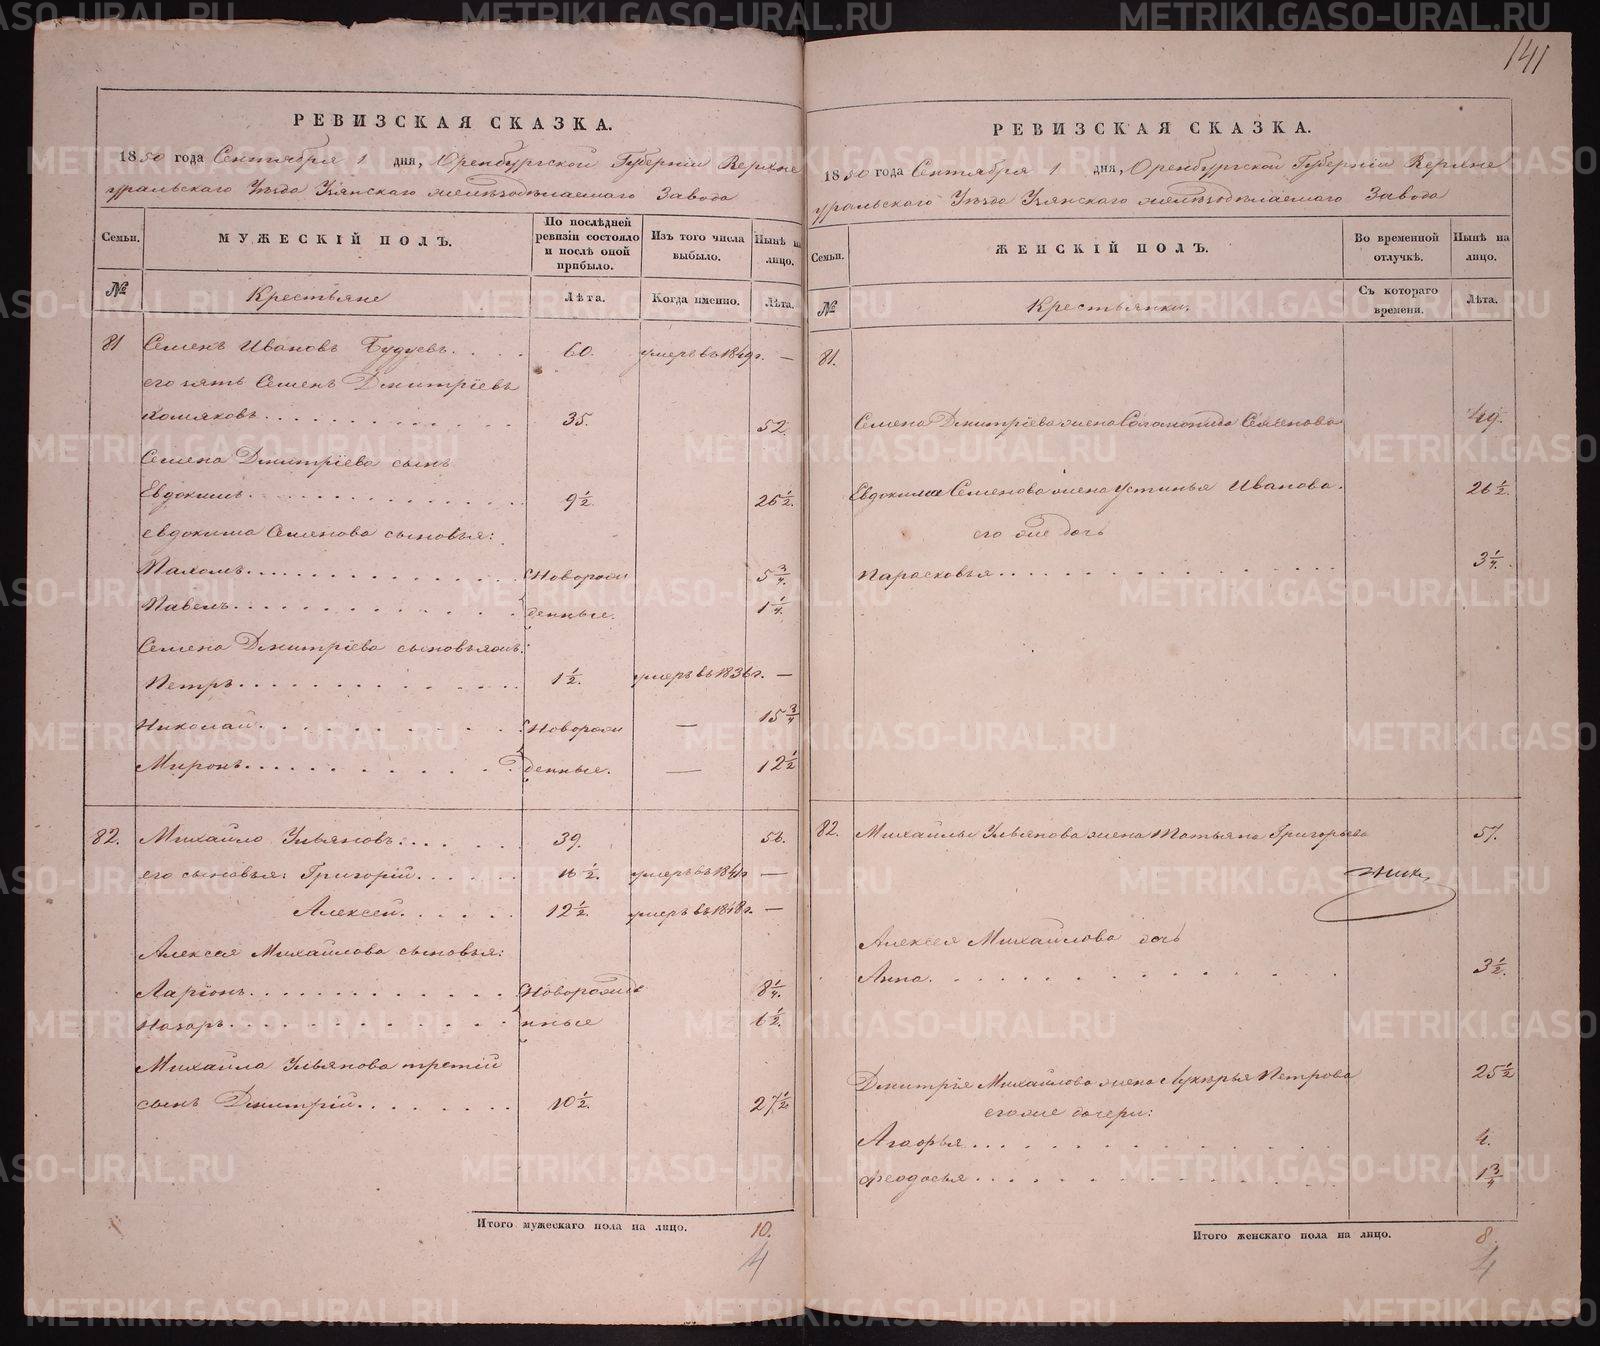 141
РЕВИЗСКАЯ СКАЗКА.
1850 года Сентября 1 дня, Оренбургской Губерніи Верхне
уральскаго Уѣзда Узянскаго желѣзодѣлаемаго Завода
Семьи.
МУЖЕСКІЙ ПОЛЪ.
По послѣдней ревизіи состояло и послѣ оной прибыло.
Изъ того числа выбыло.
Нынѣ на лицо.
№
Крестьяне
Лѣта.
Когда именно.
Лѣта.
81 Семенъ Ивановъ Будуевъ.... 60. умеръ въ 1849г. —
его зять Семенъ Дмитріевъ
Хомяковъ........... 35. 52.
Семена Дмитріева сынъ
Евдокимъ............ 9½. 26½.
Евдокима Семенова сыновья:
Пахомъ............. Новорож 5¾.
Павелъ............. денные. 1¼.
Семена Дмитріева сыновьямъ:
Петръ............. 1½. умеръ въ 1836г. —
Николай........... Новорож — 15¾
Миронъ........... денные. — 12½
82. Михайло Ульяновъ:..... 39. 56.
его сыновья: Григорій..... 16½. умеръ въ 1841г —
Алексей..... 12½. умеръ въ 1848г. —
Алексея Михайлова сыновья:
Ларіонъ............ Новорожде 8¼.
Назаръ............ нные 6½.
Михайла Ульянова третій
сынъ Дмитрій....... 10½. 27½.
Итого мужескаго пола на лицо. 10.
4
РЕВИЗСКАЯ СКАЗКА.
1850 года Сентября 1 дня, Оренбургской Губерніи Верхне
уральскаго Уѣзда Узянскаго желѣзодѣлаемаго Завода
Семьи.
ЖЕНСКІЙ ПОЛЪ.
Во временной отлучкѣ.
Нынѣ на лицо.
№
Крестьянки.
Съ котораго времени.
Лѣта.
81.
Семена Дмитріева жена Соломонида Семенова 49.
Евдокима Семенова жена Устинья Иванова. 26½.
его же дочь
Парасковья............... 3¼.
82. Михайлы Ульянова жена Татьяна Григорьева 57.
Алексея Михайлова дочь
Анна............... 3½.
Дмитрія Михайлова жена Лукерья Петрова 25½
его же дочери:
Агафья............... 4.
Феодосья............... 1¾
Итого женскаго пола на лицо. 8.
4
METRIKI.GASO-URAL.RU